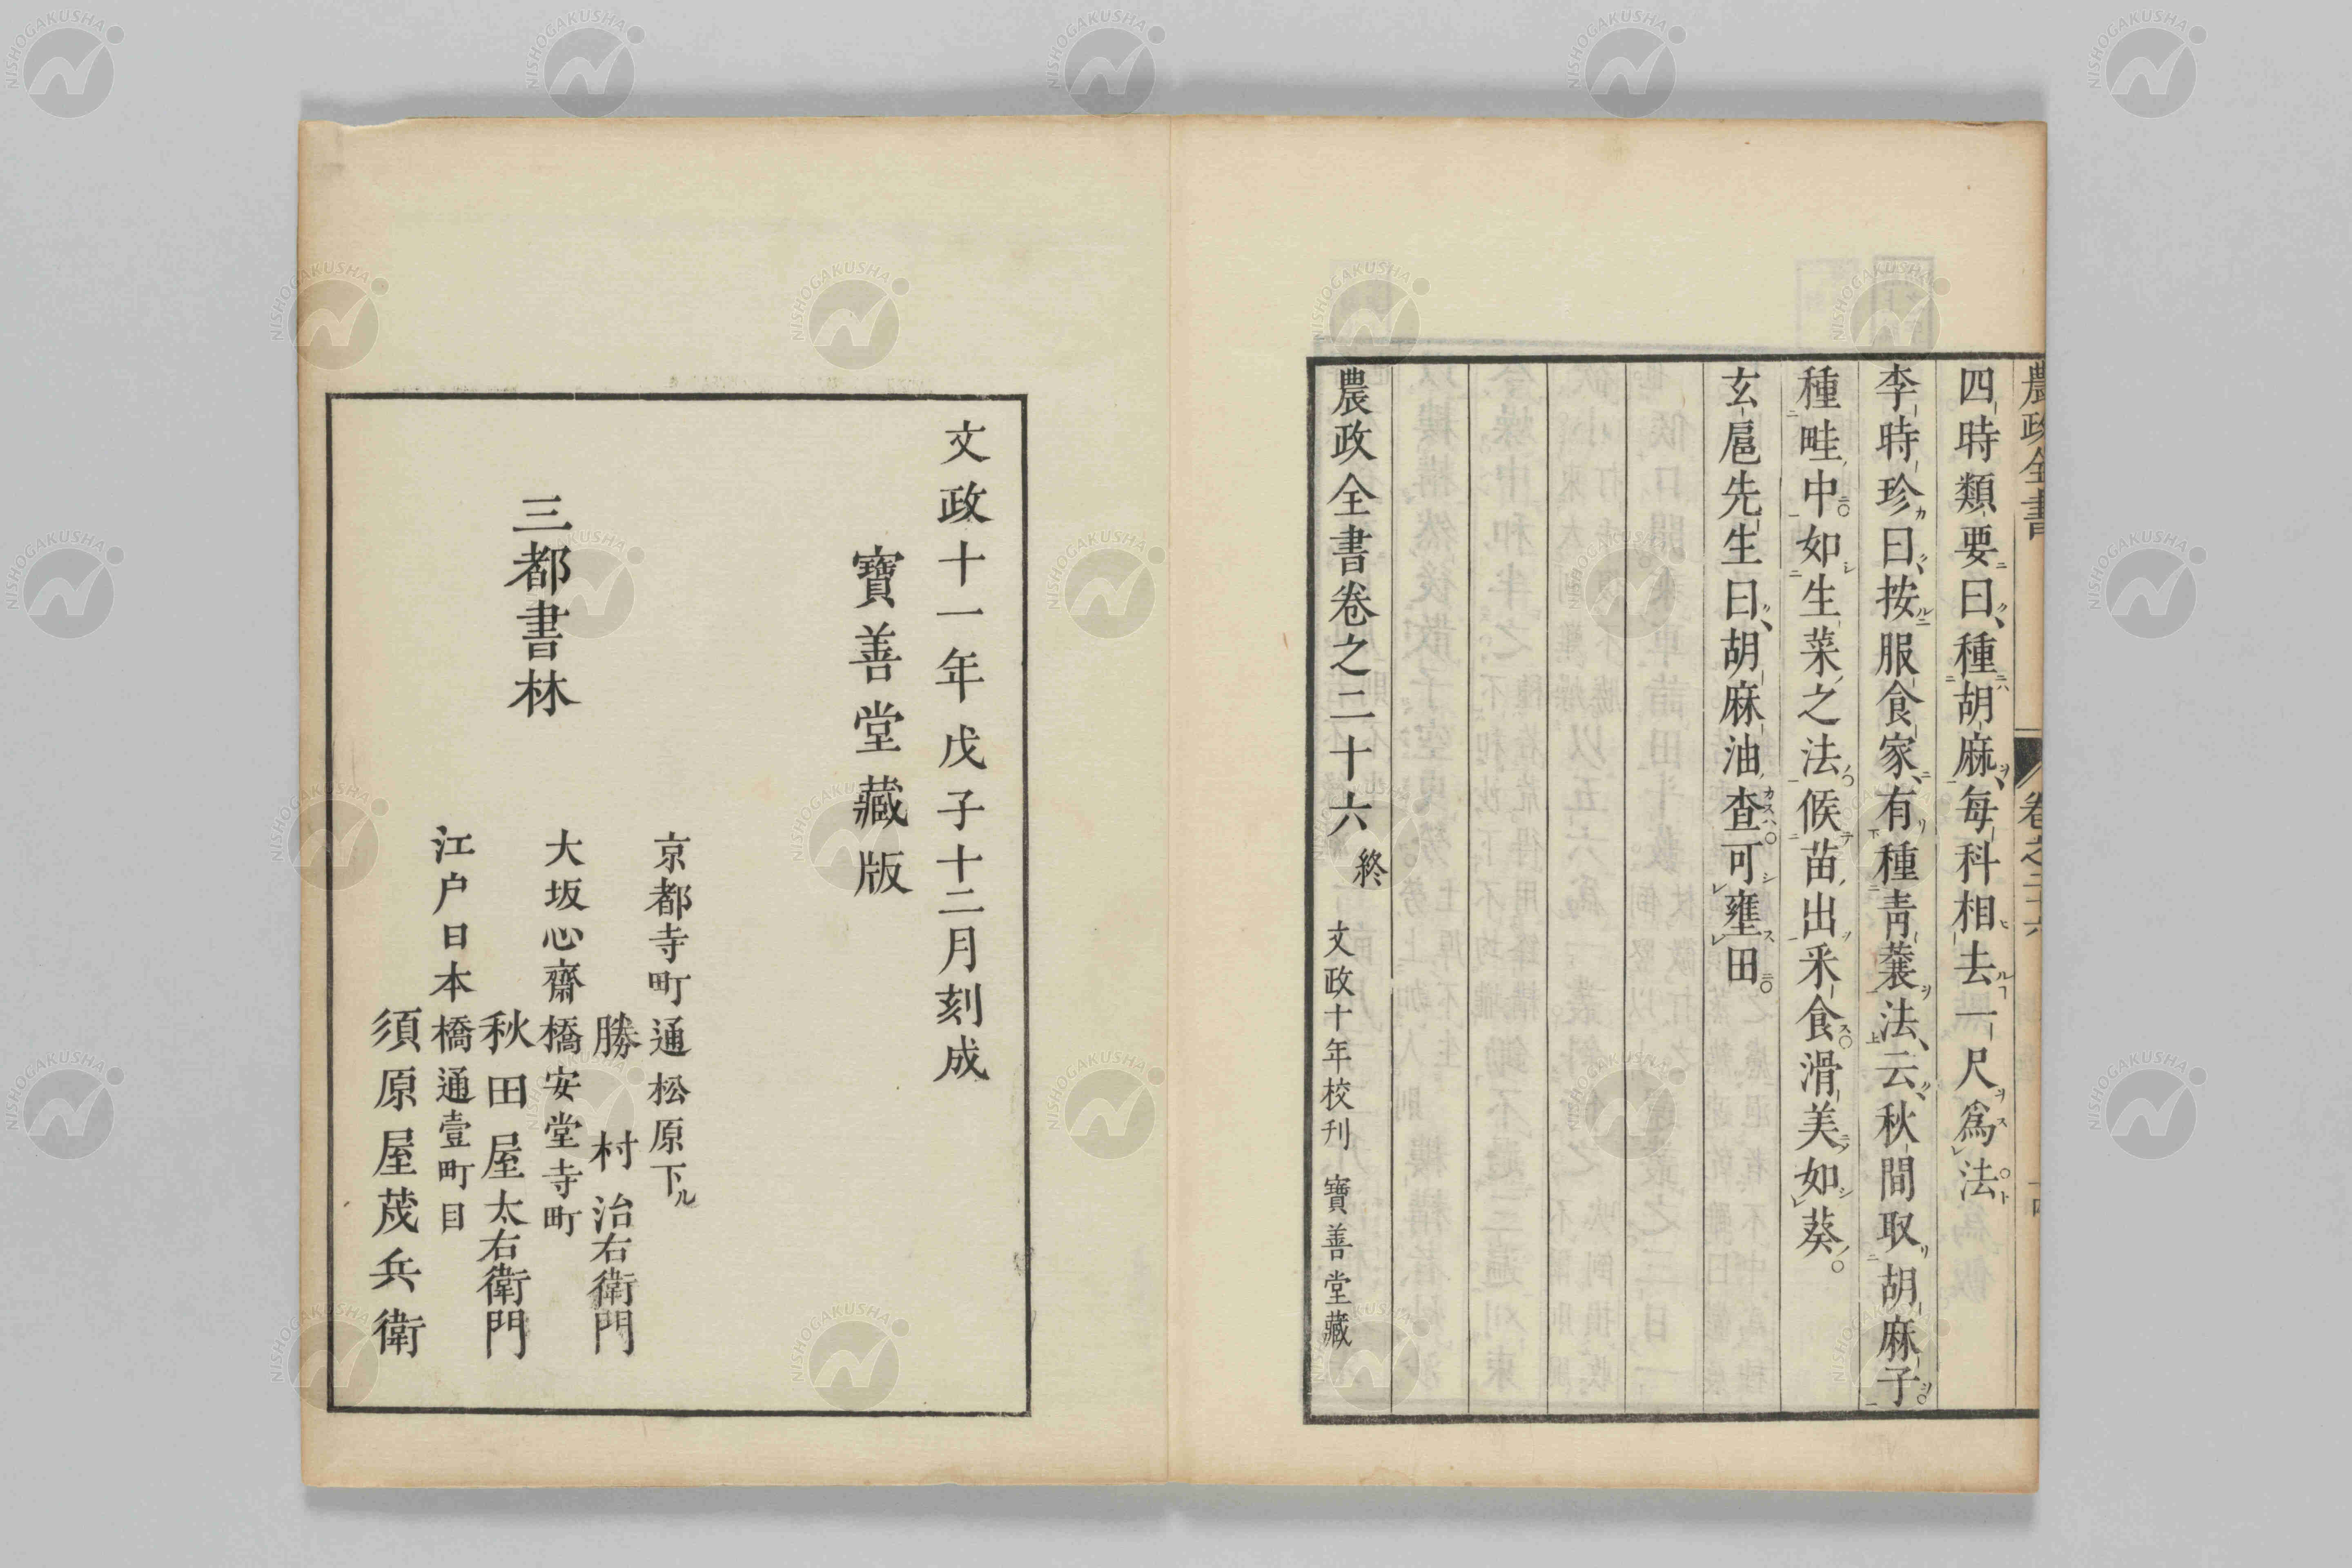 農政全書 卷之二十六
四時類要曰種胡麻每科相去一尺爲法
李時珍曰按服食家有種靑蘘法云秋間取胡麻子
種畦中如生菜之法候苗出采食滑美如葵
玄扈先生曰胡麻油査可壅田
農政全書卷之二十六終 文政十年校刊 寶善堂藏
文政十一年戊子十二月刻成
寶善堂藏版
京都寺町通松原下ル
勝村治右衛門
大坂心齋橋安堂寺町
秋田屋太右衛門
三都書林
江戸日本橋通壹町目
須原屋茂兵衛
NISHOGAKUSHA